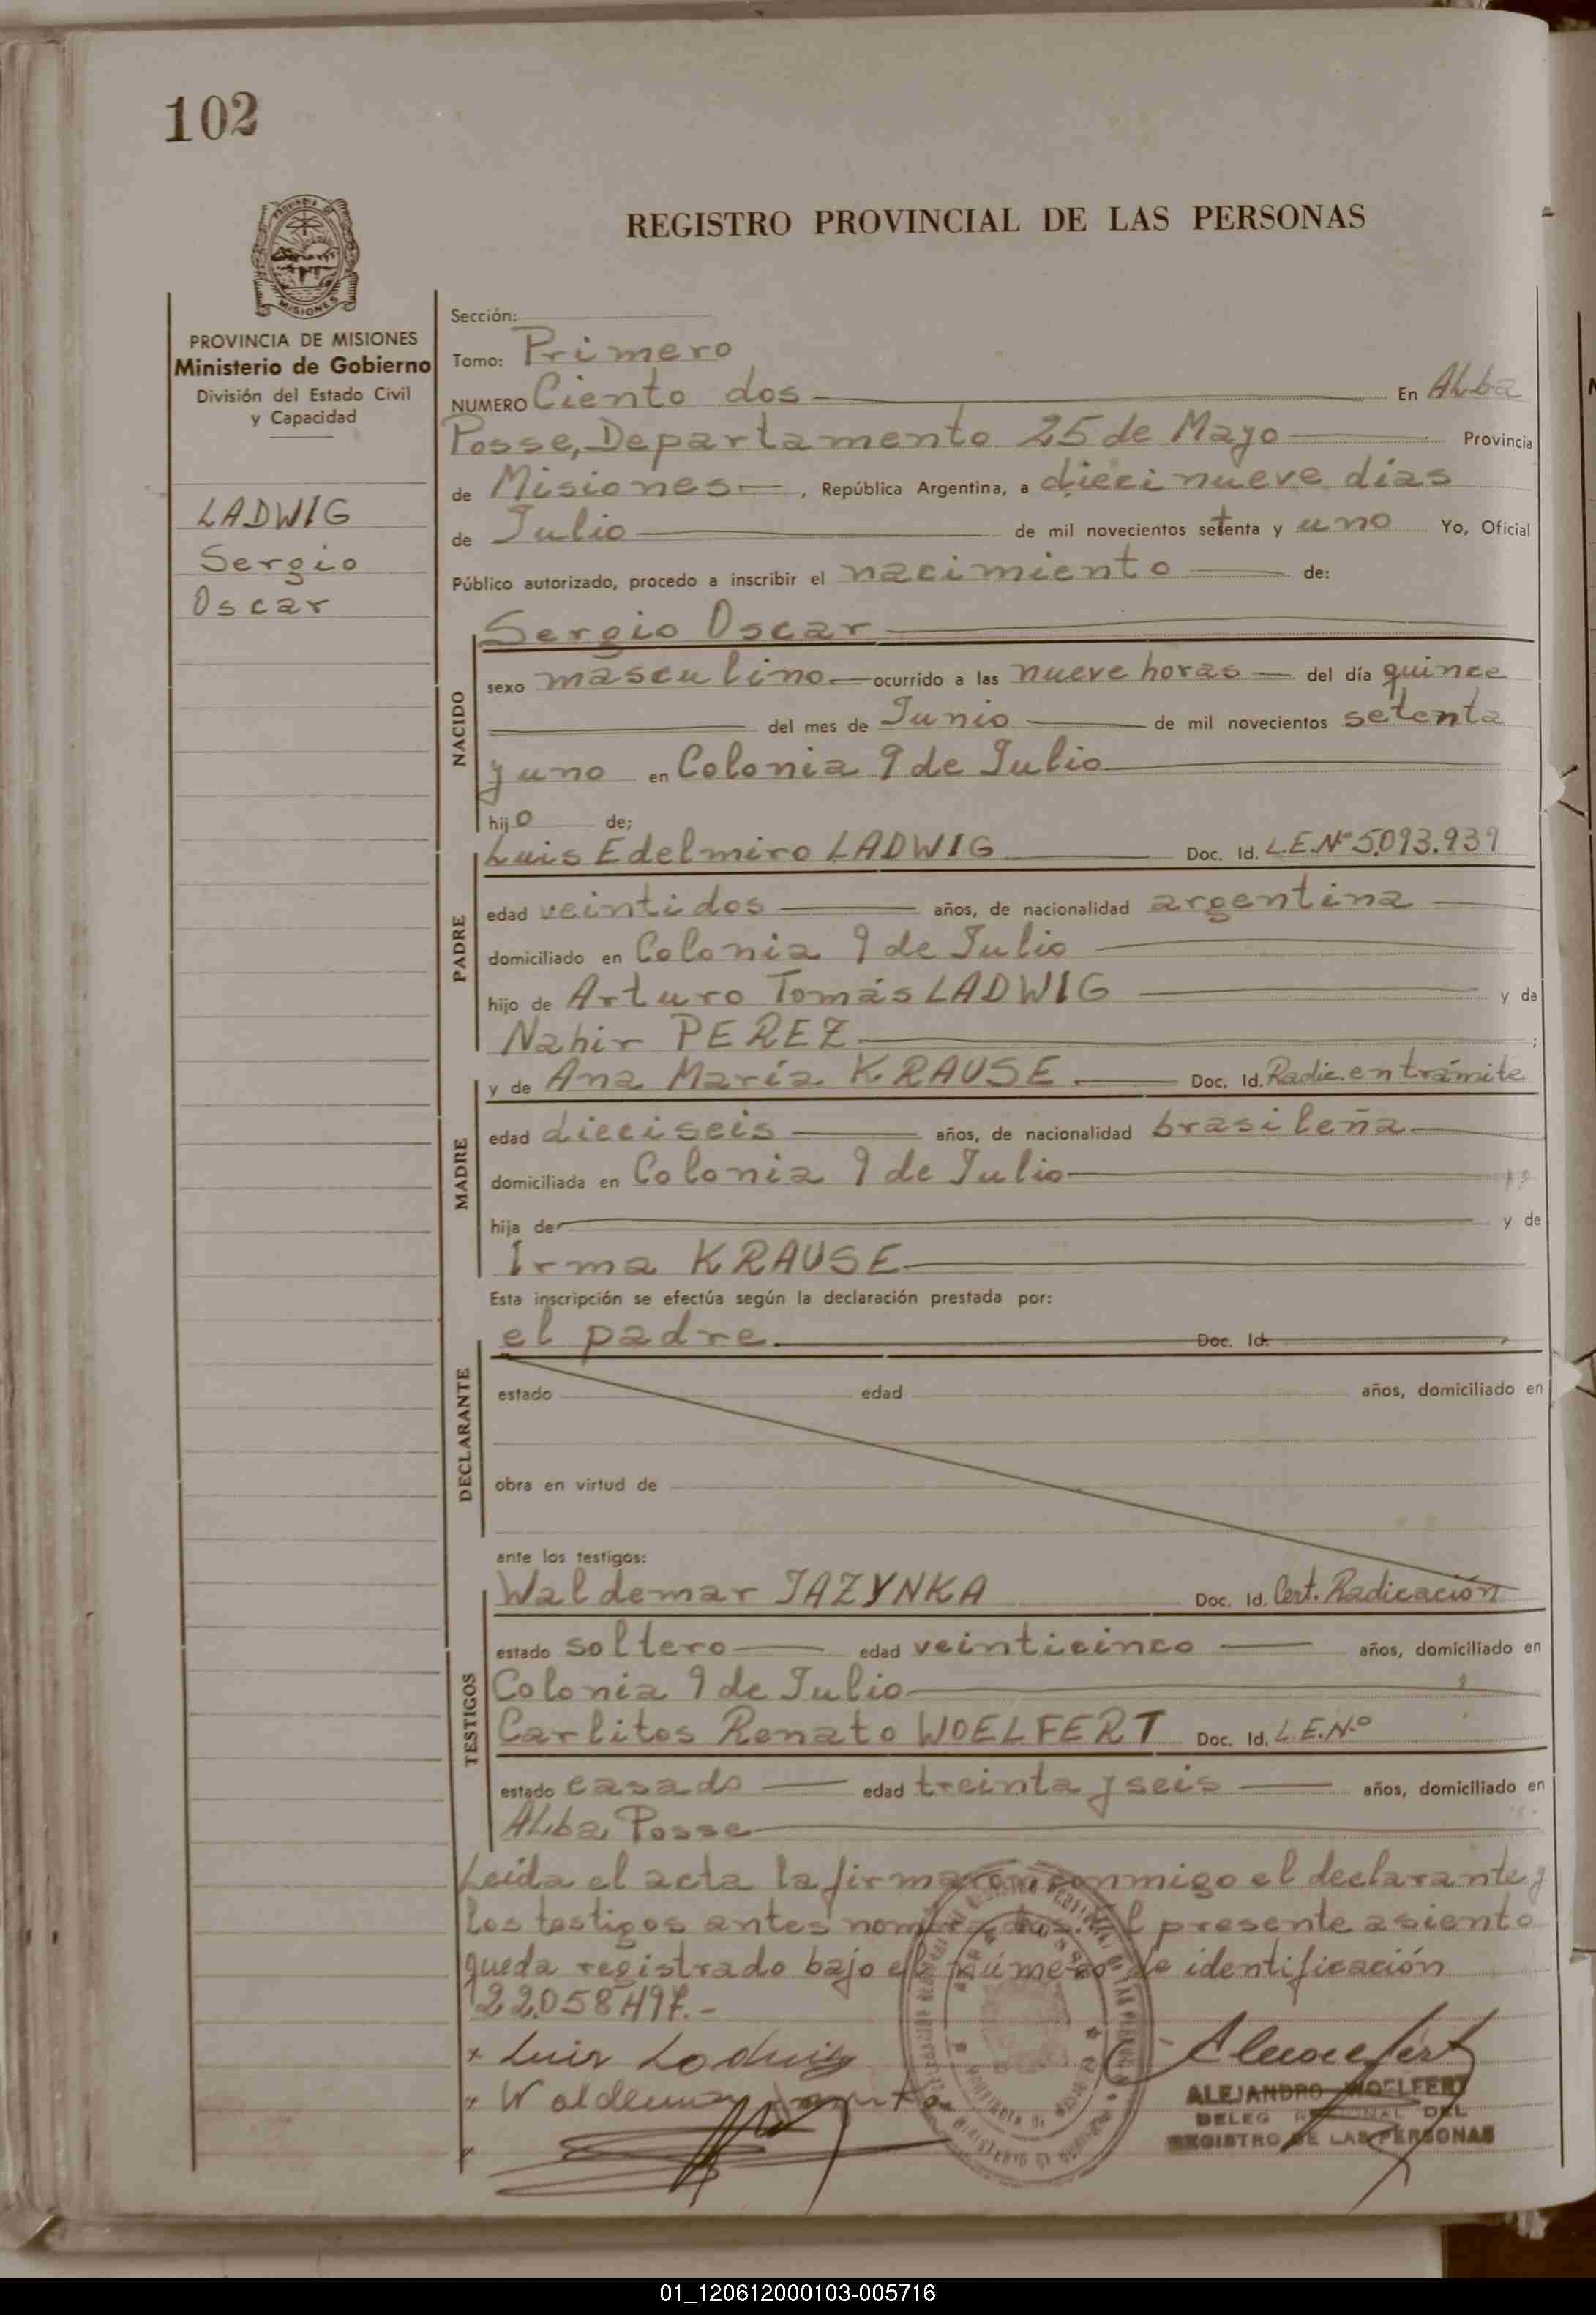 102
REGISTRO PROVINCIAL DE LAS PERSONAS
MISIONES
PROVINCIA DE MISIONES
Ministerio de Gobierno
División del Estado Civil
y Capacidad
LADWIG
Sergio
Oscar
Sección:
Tomo: Primero
NUMERO Ciento dos En Alba
Posse, Departamento 25 de Mayo Provincia
de Misiones, República Argentina, a diecinueve días
de Julio de mil novecientos setenta y uno Yo, Oficial
Público autorizado, procedo a inscribir el nacimiento de:
NACIDO
Sergio Oscar
sexo masculino ocurrido a las nueve horas del día quince
del mes de Junio de mil novecientos setenta
y uno en Colonia 9 de Julio
hijo de;
PADRE
Luis Edelmiro LADWIG Doc. Id. L.E.Nº 5.093.939
edad veintidos años, de nacionalidad argentina
domiciliado en Colonia 9 de Julio
hijo de Arturo Tomás LADWIG y de
Nahir PEREZ ;
MADRE
y de Ana María KRAUSE Doc. Id. Radic. en trámite
edad dieciseis años, de nacionalidad brasileña
domiciliada en Colonia 9 de Julio
hija de y de
Irma KRAUSE
Esta inscripción se efectúa según la declaración prestada por:
DECLARANTE
el padre Doc. Id.
estado edad años, domiciliado en
obra en virtud de
ante los testigos:
TESTIGOS
Waldemar JAZYNKA Doc. Id. Cert. Radicación
estado soltero edad veinticinco años, domiciliado en
Colonia 9 de Julio
Carlitos Renato WOELFERT Doc. Id. L.E.Nº
estado casado edad treinta y seis años, domiciliado en
Alba Posse
Leída el acta la firmaron conmigo el declarante y
los testigos antes nombrados. El presente asiento
queda registrado bajo el número de identificación
22.058.497.-
x Luis Ladwig
x Waldemar
ALEJANDRO WOELFERT
DELEG REGIONAL DEL
REGISTRO DE LAS PERSONAS
01_120612000103-005716